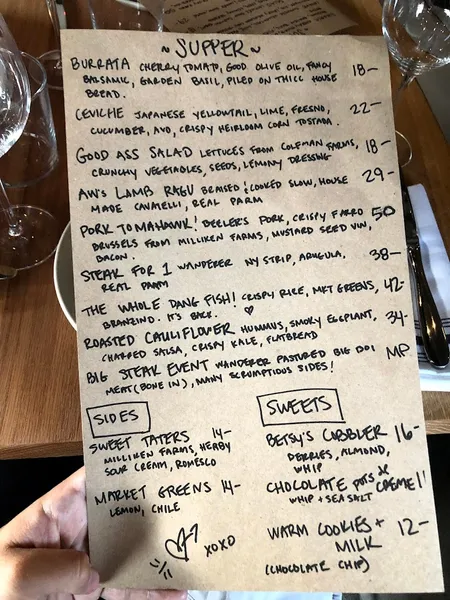 ~ SUPPER ~
BURRATA CHERRY TOMATO, GOOD OLIVE OIL, FANCY 18-
BALSAMIC, GARDEN BASIL, PILED ON THICC HOUSE
BREAD.
CEVICHE JAPANESE YELLOWTAIL, LIME, FRESNO, 22-
CUCUMBER, AVO, CRISPY HEIRLOOM CORN TOSTADA.
GOOD ASS SALAD LETTUCES FROM COLEMAN FARMS, 18-
CRUNCHY VEGETABLES, SEEDS, LEMONY DRESSING
AW'S LAMB RAGU BRAISED & COOKED SLOW, HOUSE 29-
MADE CAVATELLI, REAL PARM
PORK TOMAHAWK! BEELER'S PORK, CRISPY FARRO 50
BRUSSELS FROM MILLIKEN FARMS, MUSTARD SEED VIN,
BACON.
STEAK FOR 1 WANDERER NY STRIP, ARUGULA, 38-
REAL PARM
THE WHOLE DANG FISH! CRISPY RICE, MKT GREENS, 42-
BRANZINO. IT'S BACK. ♡
ROASTED CAULIFLOWER HUMMUS, SMOKY EGGPLANT, 34-
CHARRED SALSA, CRISPY KALE, FLATBREAD
BIG STEAK EVENT WANDERER PASTURED BIG OOL MP.
MEAT (BONE IN), MANY SCRUMPTIOUS SIDES!
SIDES
SWEET TATERS 14-
MILLIKEN FARMS, HERBY
SOUR CREAM, ROMESCO
MARKET GREENS 14-
LEMON, CHILE
♡ XOXO
SWEETS
BETSY'S COBBLER 16-
BERRIES, ALMOND,
WHIP
CHOCOLATE POTS DE CREME 11
WHIP + SEA SALT
WARM COOKIES + 12-
MILK
(CHOCOLATE CHIP)